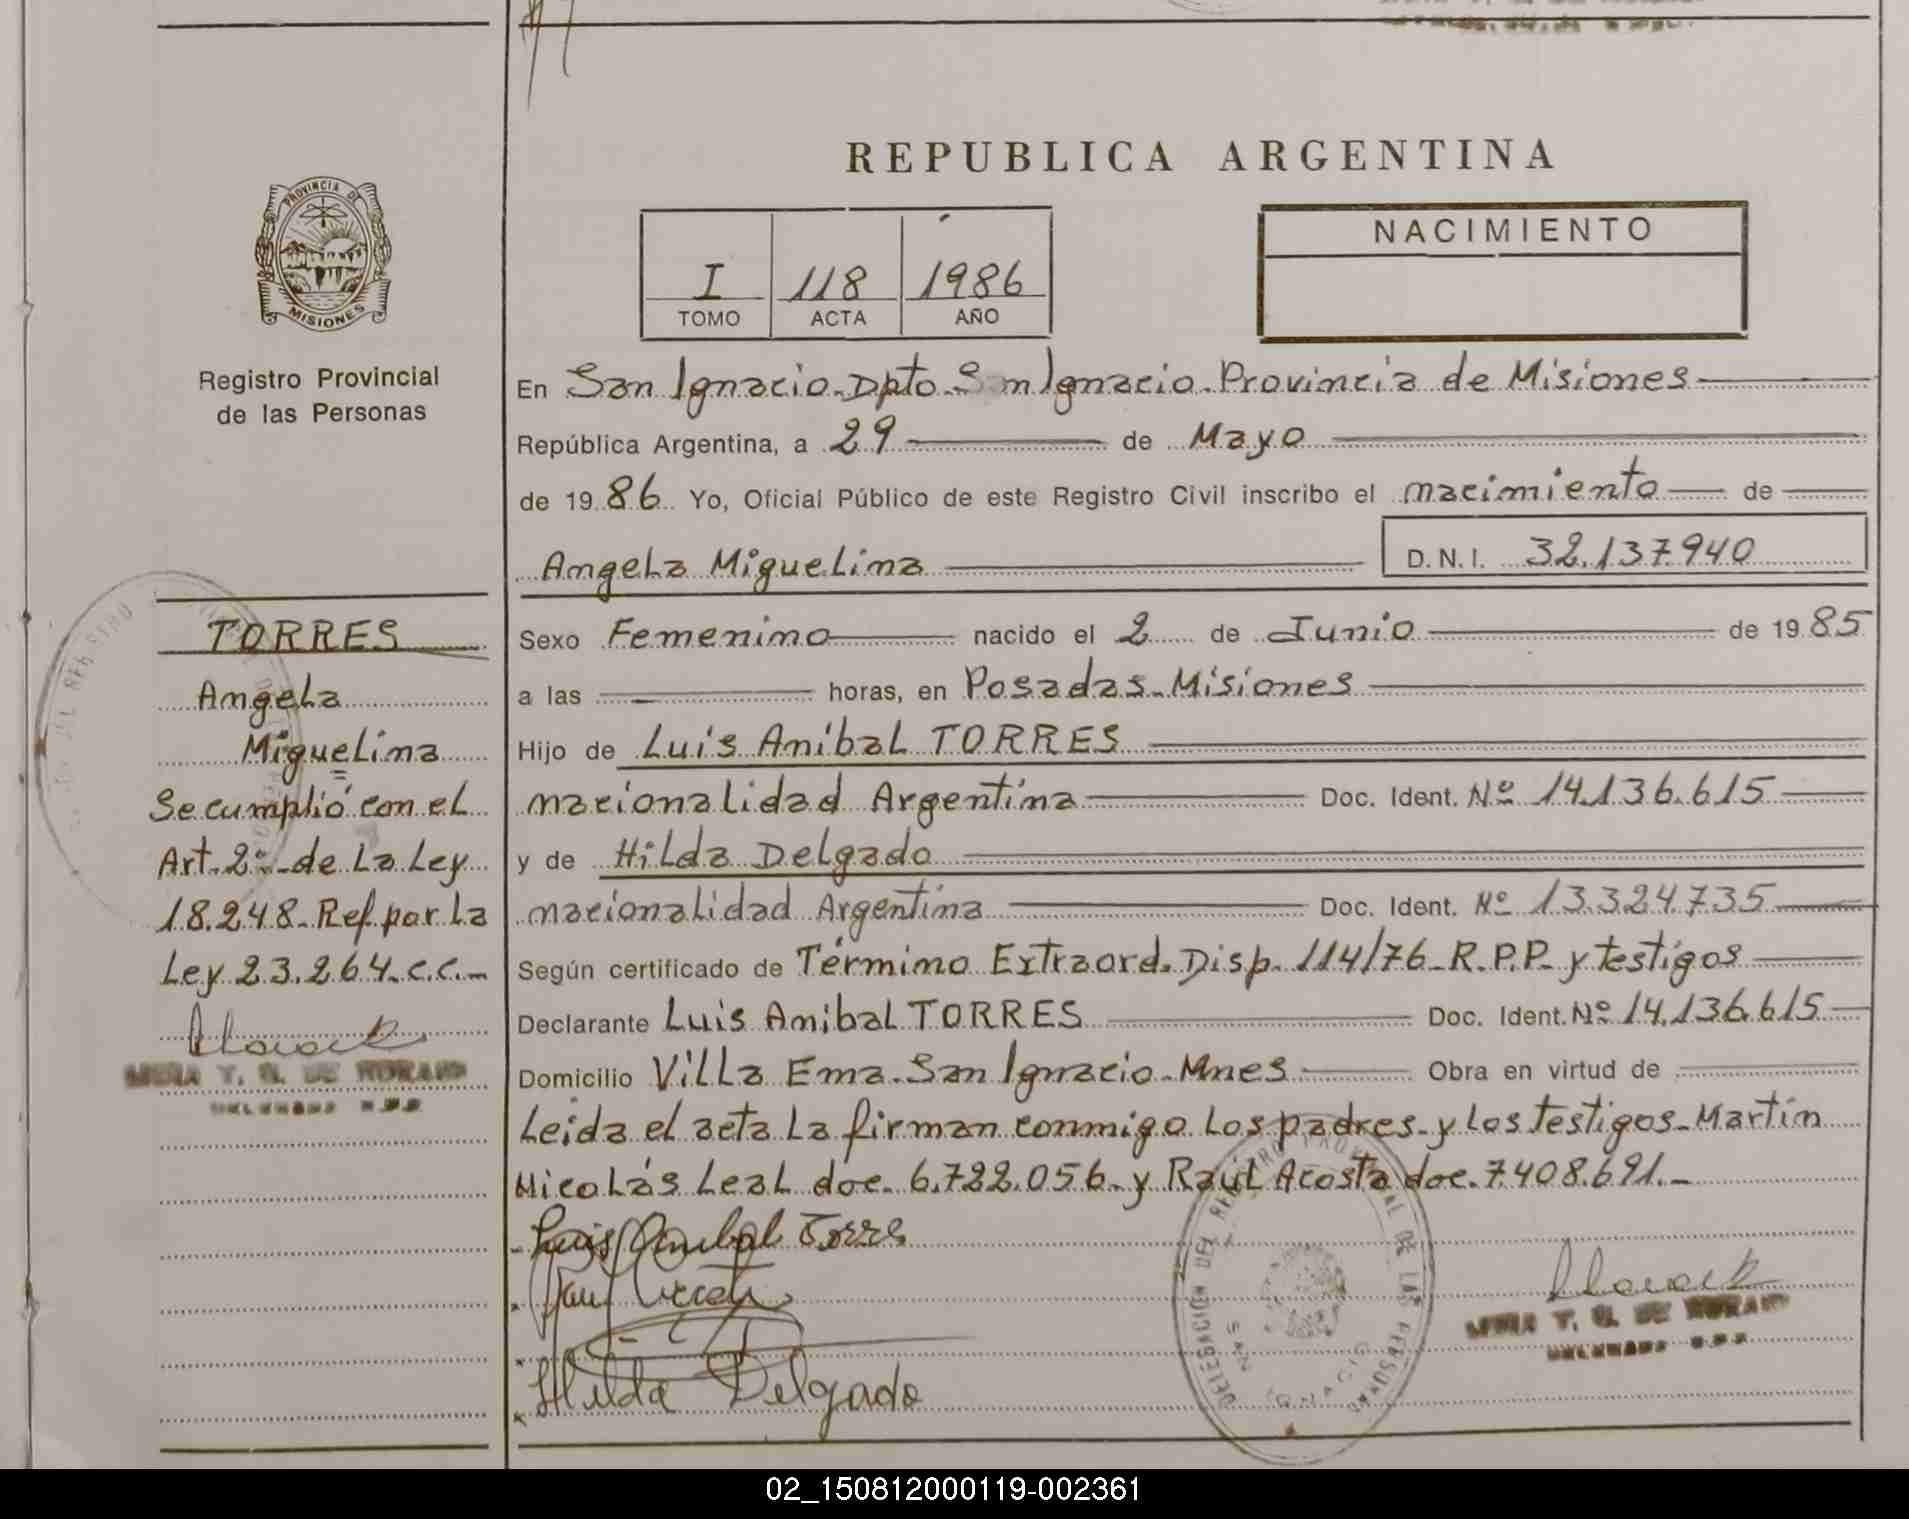 REPUBLICA ARGENTINA
PROVINCIA DE
MISIONES
Registro Provincial
de las Personas
I 118 1986
TOMO ACTA AÑO
NACIMIENTO
En San Ignacio. Dpto. San Ignacio. Provincia de Misiones
República Argentina, a 29 de Mayo
de 19 86 Yo, Oficial Público de este Registro Civil inscribo el nacimiento de
Angela Miguelina D.N.I. 32.137.940
Sexo Femenino nacido el 2 de Junio de 19 85
a las horas, en Posadas. Misiones
Hijo de Luis Anibal TORRES
nacionalidad Argentina Doc. Ident. Nº 14.136.615
y de Hilda Delgado
nacionalidad Argentina Doc. Ident. Nº 13.324.735
Según certificado de Término Extraord. Disp. 114/76- R.P.P. y testigos
Declarante Luis Anibal TORRES Doc. Ident. Nº 14.136.615
Domicilio Villa Ema. San Ignacio. Mnes Obra en virtud de
Leida el acta La firman conmigo Los padres y Los testigos- Martín
Nicolás Leal doc. 6.722.056- y Raúl Acosta doc. 7.408.691.-
Luis Anibal Torres
Hilda Delgado
DELEGACION DEL REGISTRO PROVINCIAL DE LAS PERSONAS
SAN IGNACIO
TORRES
Angela
Miguelina
Se cumplió con el
Art. 2º- de La Ley
18.248- Ref. por La
Ley 23.264- c.c.-
02_150812000119-002361